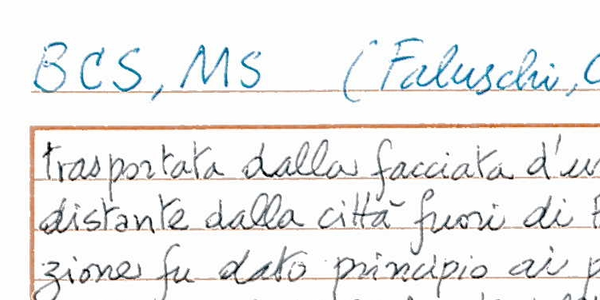 BCS, MS (Faluschi,
trasportata dalla facciata d'u
distante dalla città fuori di
zione fu dato principio ai p